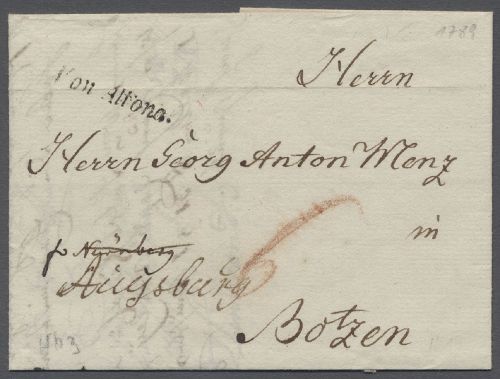 1789
Von Altona.
Herrn
Herrn Georg Anton Menz
in
po Nürnberg
Augsburg
6
Botzen